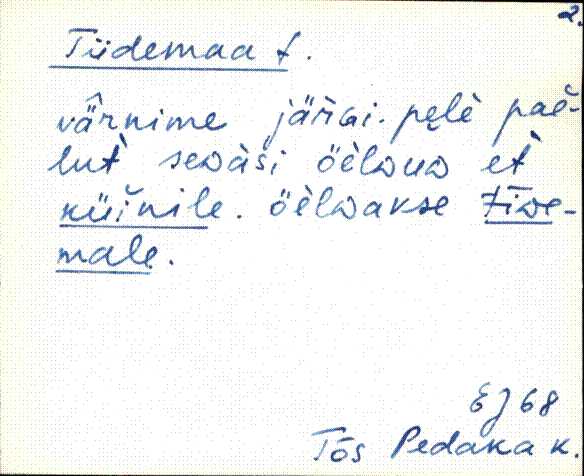 2.
Tiidemaa t.
vä̂rnime järäi. pęlè paě-
lut̀ sewàši öèlwuw et̀
küinile. öèlwakse tīwe-
male.
EJ 68
Tõs Pedaka k.